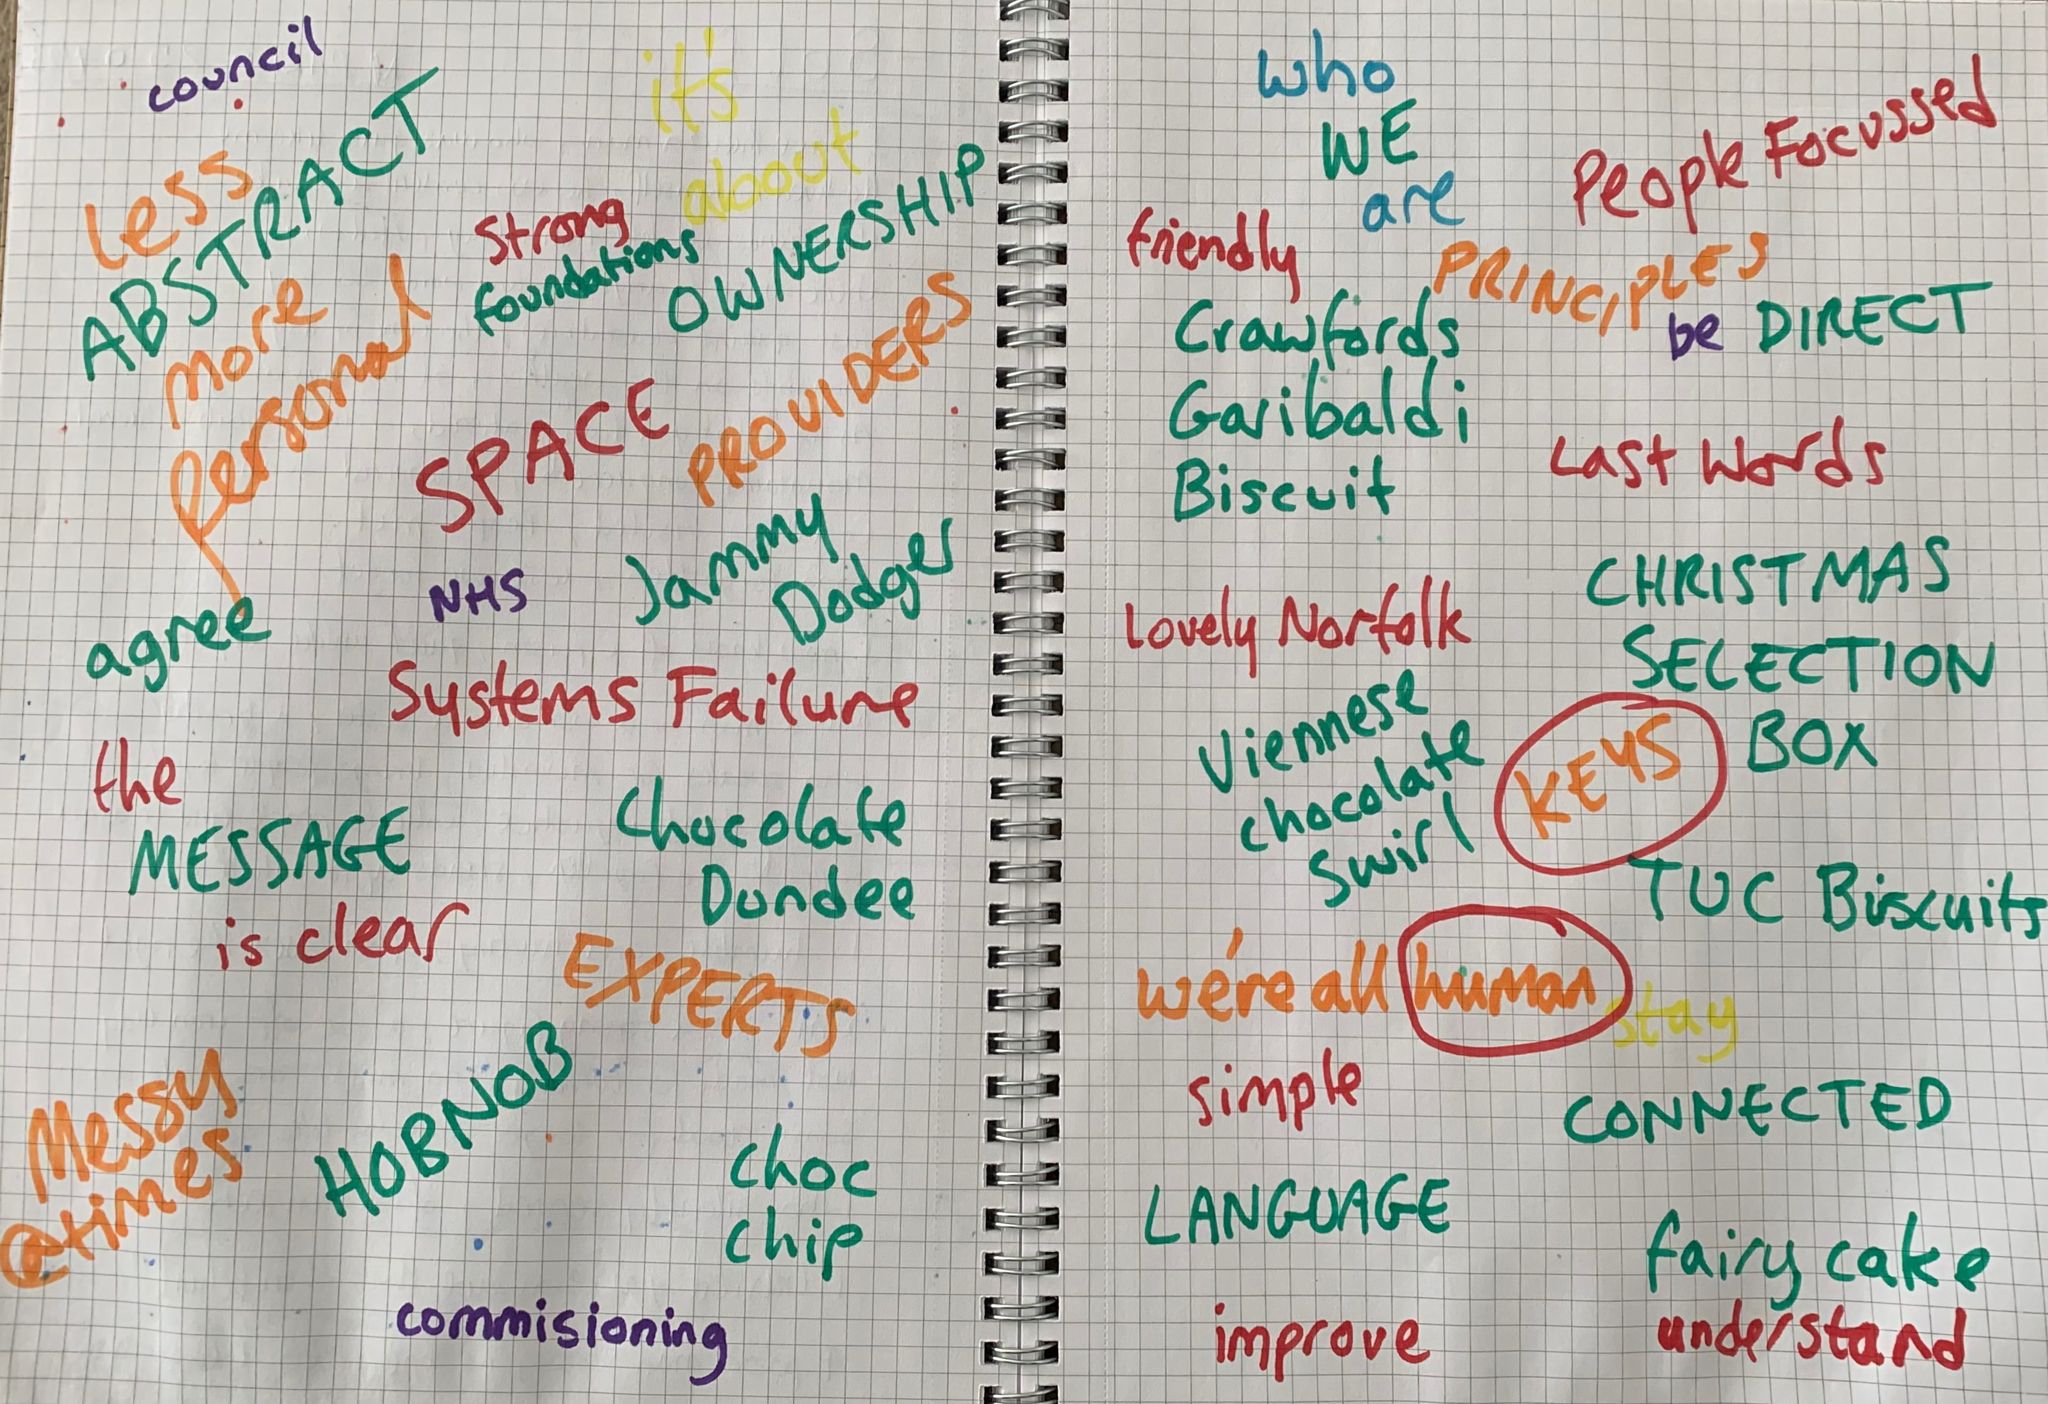 council
Less
ABSTRACT
more
Personal
it's
about
OWNERSHIP
Strong
foundations
SPACE
PROVIDERS
NHS
Jammy
Dodger
agree
Systems Failure
the
MESSAGE
is clear
Chocolate
Dundee
EXPERTS
Messy
@times
HOBNOB
choc
chip
commisioning
who
WE
are
People Focussed
friendly
PRINCIPLES
be DIRECT
Crawfords
Garibaldi
Biscuit
Last Words
CHRISTMAS
SELECTION
BOX
Lovely Norfolk
Viennese
chocolate
swirl
KEYS
TUC Biscuits
we're all human
stay
CONNECTED
simple
LANGUAGE
fairy cake
improve
understand